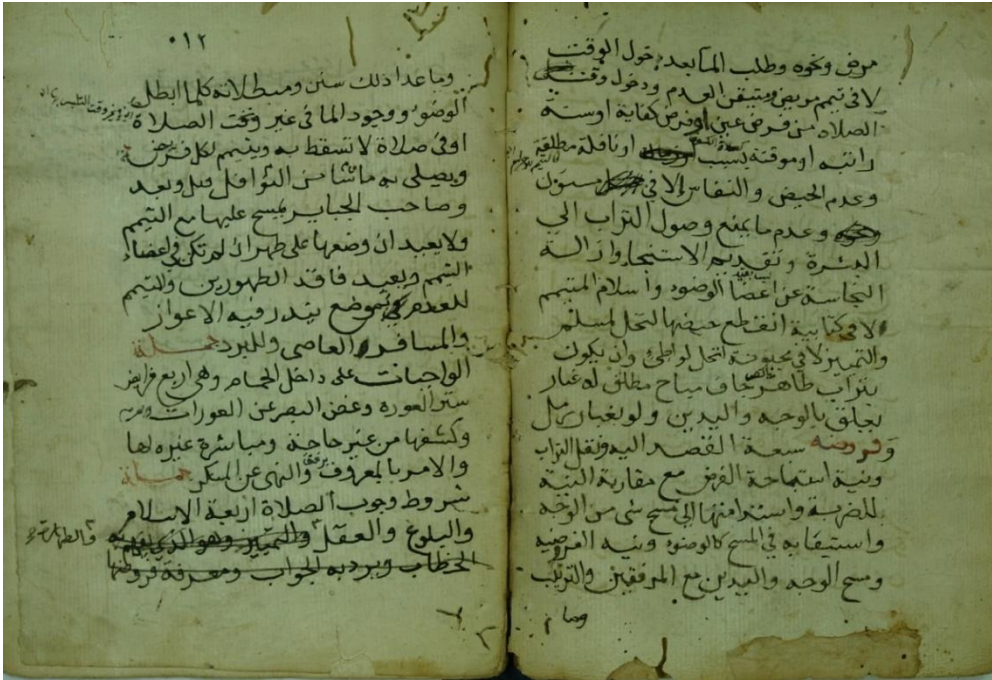 مرض ونحوه وطلب الماء بعد دخول الوقت
لا في تيمم مريض ومتيقن العدم ودخول وقت
الصلاه من فرض عين او فرض كفاية او سنة
راتبه او موقتة بسبب او نافلة مطلقة
وعدم الحيض والنفاس الا في مسنون
وعدم ما يمنع وصول التراب الي
البشرة وتقديم الاستنجا وازالة
النجاسة عن اعضا الوضوء واسلام المتيمم
الا في كتابية انقطع حيضها لتحل لمسلم
والتمييز لا في مجنونة لتحل لواطئ وان يكون
بتراب طاهر خالص جاف مباح مطلق له غبار
يعلق بالوجه واليدين ولو بغبار رمل
وفروضه سبعة القصد اليه ونقل التراب
ونية استباحة الفرض مع مقارنة النية
للضربة واستدامتها الي مسح شي من الوجه
واستيعابه في المسح كالوضوء ونيه الفرضيه
ومسح الوجه واليدين مع المرفقين والترتيب
وما
٠١٢
وما عدا ذلك سنن ومبطلاته كلما ابطل
الوضوء ووجود الما في غير وقت الصلاة
او في صلاة لا تسقط به ويتيمم لكل فريضة
ويصلي به ما شا من النوافل قبل وبعد
وصاحب الجباير يمسح عليها مع التيمم
ولا يعيد ان وضعها على طهر ان لم تكن في اعضاء
التيمم ويعيد فاقد الطهورين والتيمم
للعدم بموضع يندر فيه الاعواز
والمسافر العاصي وللبرد مسلة
الواجبات على داخل الحمام وهي اربع فرايض
ستر العوره وغض البصر عن العورات
وكشفها من غير حاجة ومباشرة غيره لها
والامر بالمعروف برفق والنهي عن المنكر مسلة
شروط وجوب الصلاة اربعة الاسلام
والبلوغ والعقل والتمييز وهو الذي يفهم به
الخطاب ويرد به الجواب ومعرفة فروضها